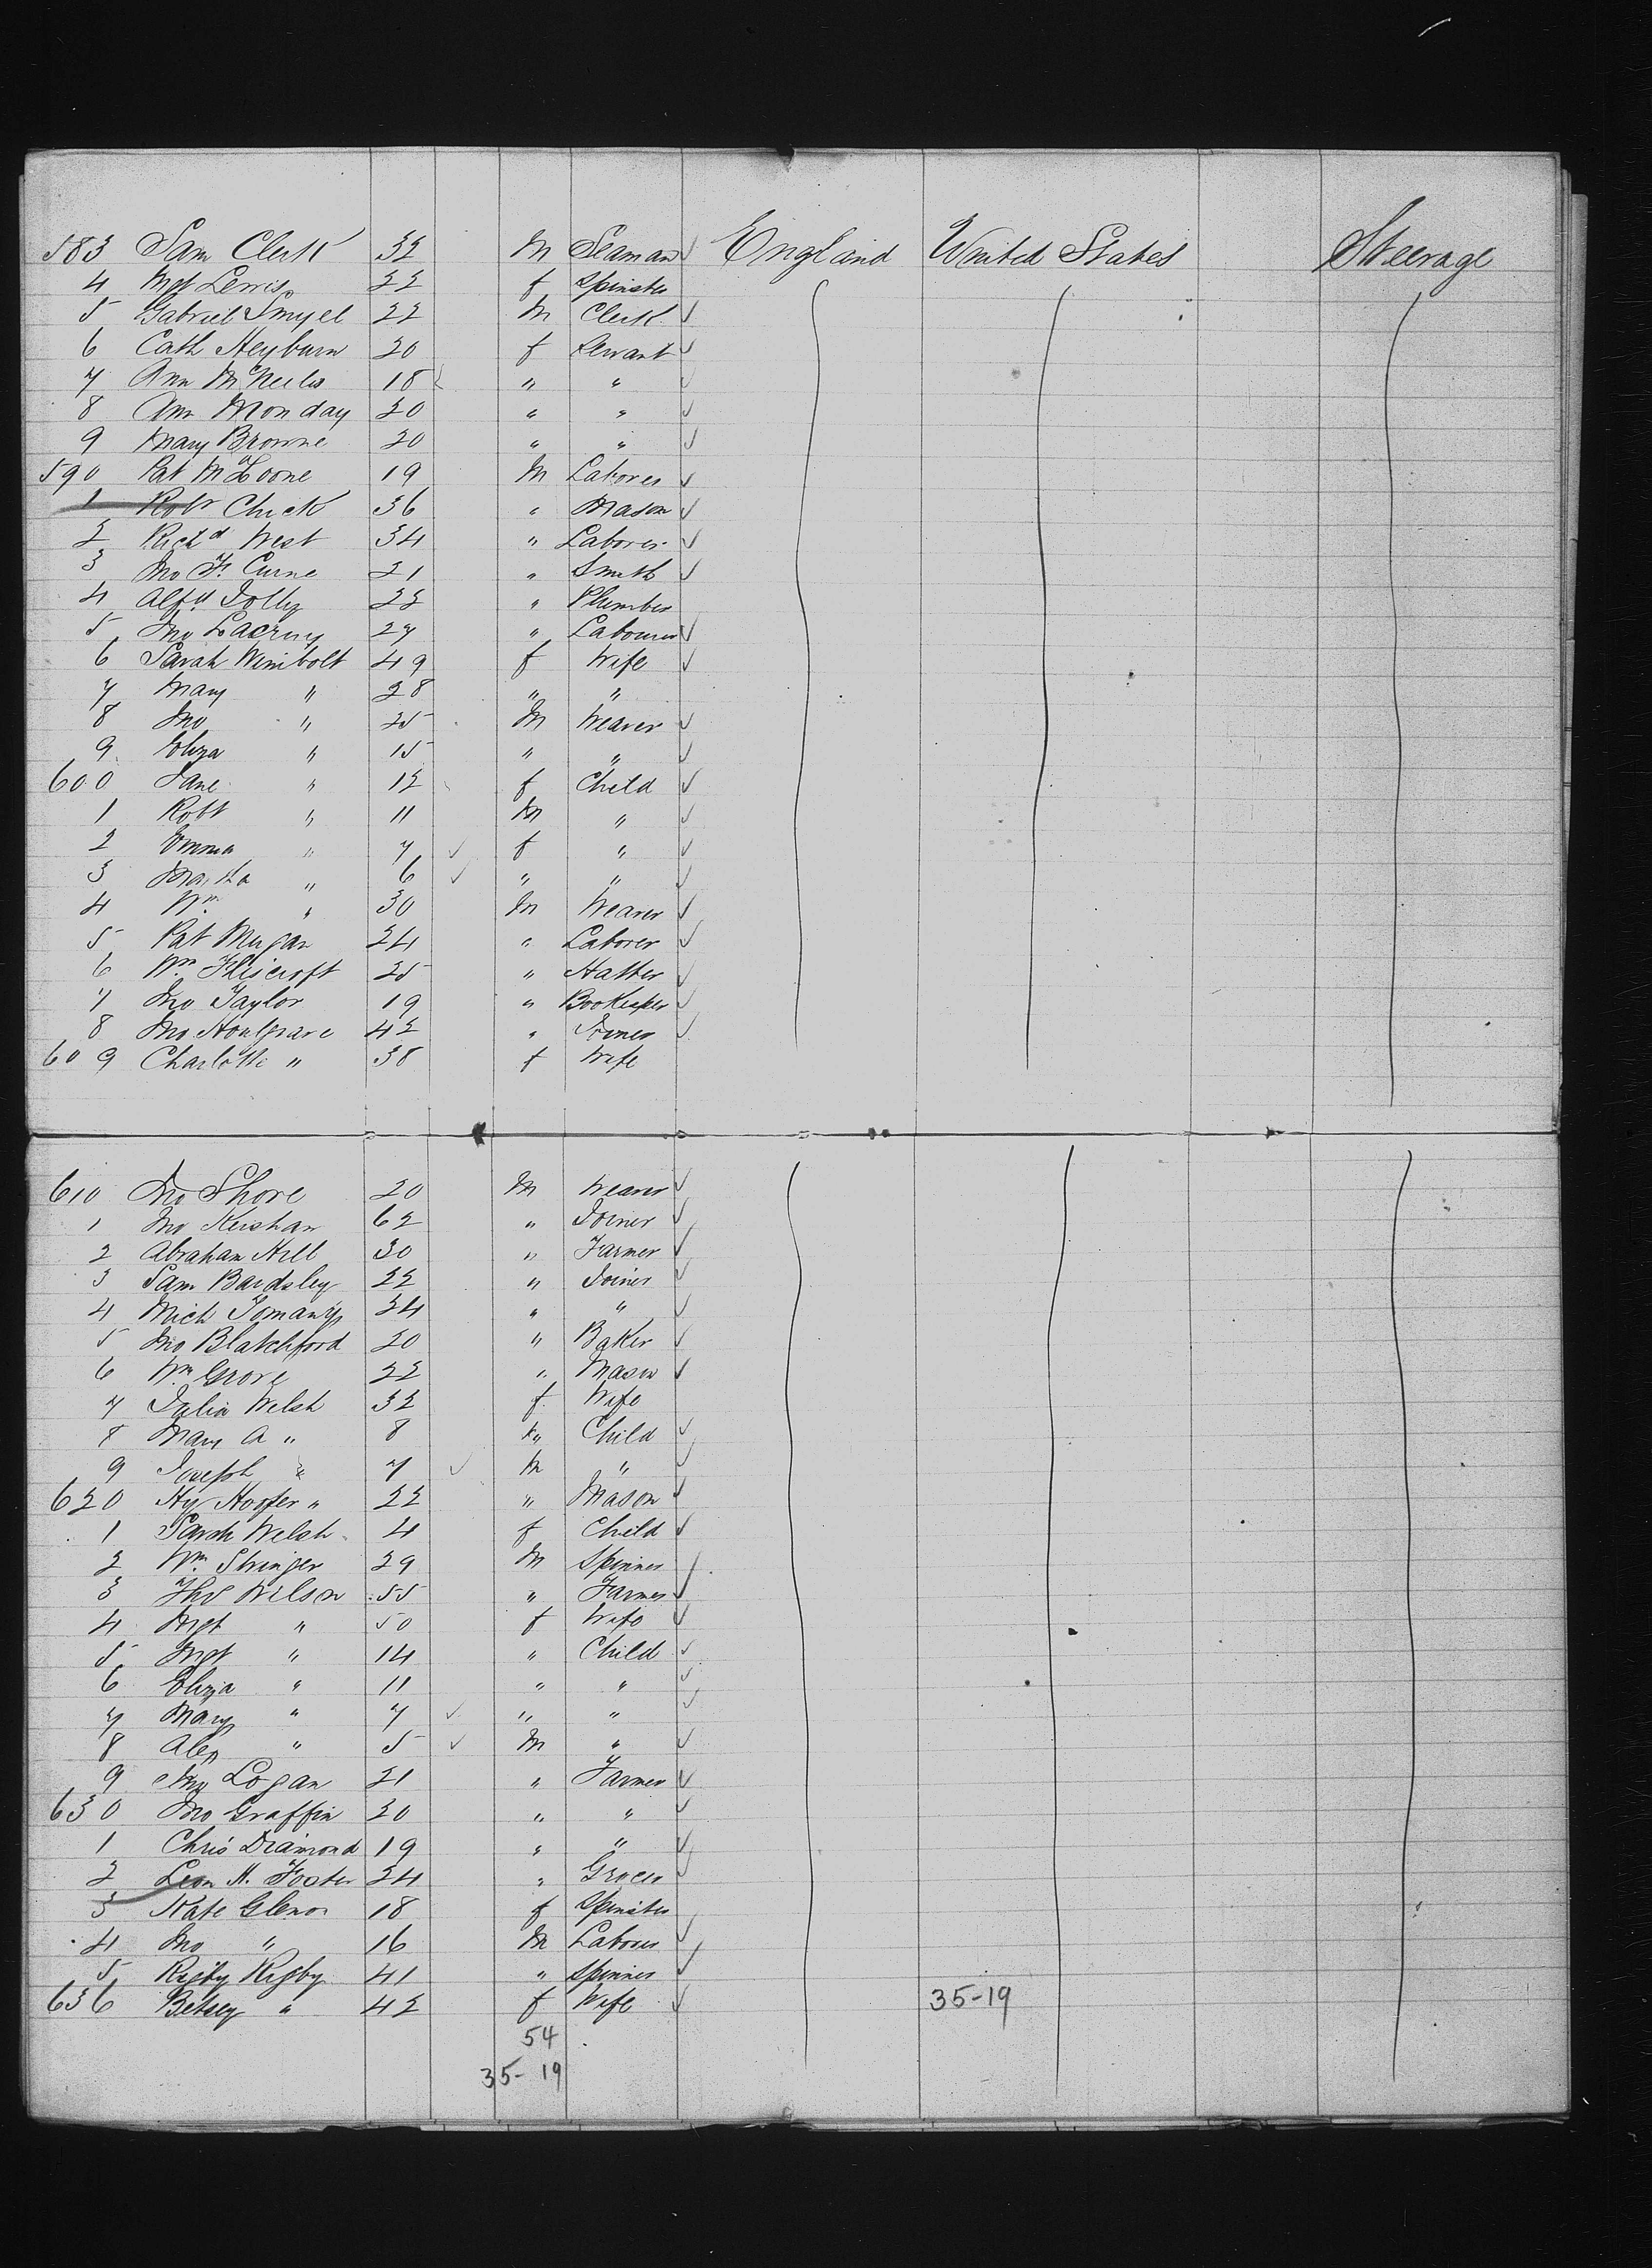 583 Sam Clerk 32 M Seaman England United States Steerage
4 Mgt Lewis 22 f Spinster
5 Gabriel Smyel 22 M Clerk
6 Cath Heyburn 20 f Servant
7 Ann McNeilis 18 " "
8 Ann Monday 20 " "
9 Mary Browne 20 " "
590 Pat McLoone 19 M Laborer
1 Robt Chick 36 " Mason
2 Richd West 34 " Laborer
3 Jno F. Curne 21 " Smith
4 Alfd Jolly 22 " Plumber
5 Jno 27 " Labourer
6 Sarah Wimbolt 49 f Wife
7 Mary " 28 " "
8 Jno " 25 M Weaver
9 Eliza " 15 " "
600 Jane " 12 f Child
1 Robt " 11 M "
2 Emma " 7 f "
3 Martha " 6 " "
4 Wm " 30 M Weaver
5 Pat Mugan 24 " Laborer
6 Wm Fliscroft 25 " Hatter
7 Jno Taylor 19 " Bookeeper
8 Jno Houlgrave 42 " Joiner
609 Charlotte " 38 f Wife
610 Jno Shore 20 M Weaver
1 Jno Kershaw 62 " Joiner
2 Abraham Hill 30 " Farmer
3 Sam Bardsley 22 " Joiner
4 Mich 24 " "
5 Jno Blatchford 20 " Baker
6 Wm Grove 22 " Mason
7 Julia Welsh 32 f Wife
8 Mary A " 8 " Child
9 Joseph " 7 M "
620 Hy Hooper " 22 " Mason
1 Sarah Welsh 4 f Child
2 Wm Stringer 29 M Spinner
3 Thos Wilson 55 " Farmer
4 Mgt " 50 f Wife
5 Mgt " 14 " Child
6 Eliza " 11 " "
7 Mary " 7 " "
8 Alex " 5 M "
9 Jno Logan 21 " Farmer
630 Jno Graffin 20 " "
1 Chris Diamond 19 " "
2 Leon H. Foster 24 " Grocer
3 Kate Glenon 18 f Spinster
4 Jno " 16 M Laborer
5 Rigby Rigby 41 " Spinner
636 Betsey " 42 f Wife 35-19
54
35-19